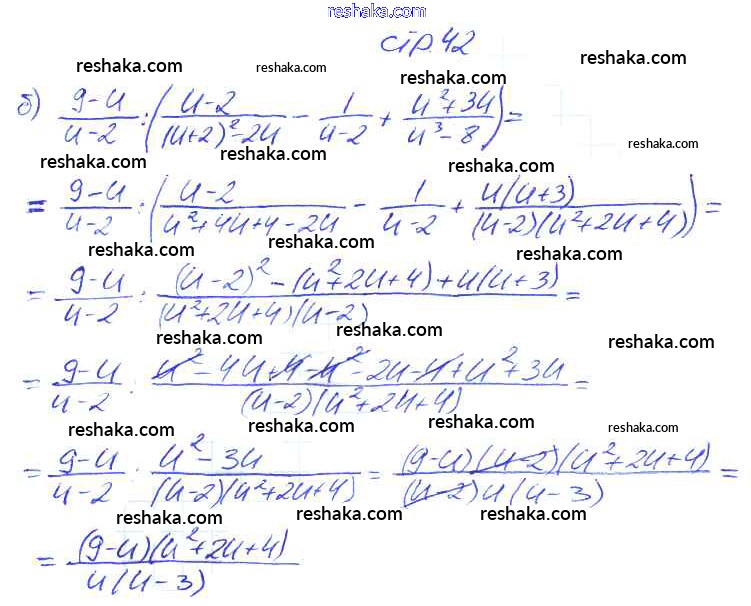 reshaka.com
стр. 42
reshaka.com reshaka.com reshaka.com
б) (9-u)/(u-2) : ((u-2)/((u+2)²-2u) - 1/(u-2) + (u²+3u)/(u³-8)) =
reshaka.com reshaka.com reshaka.com
= (9-u)/(u-2) : ((u-2)/(u²+4u+4-2u) - 1/(u-2) + u(u+3)/((u-2)(u²+2u+4))) =
reshaka.com reshaka.com reshaka.com
= (9-u)/(u-2) : ((u-2)²-(u²+2u+4)+u(u+3))/((u²+2u+4)(u-2)) =
reshaka.com reshaka.com reshaka.com
= (9-u)/(u-2) : (u²-4u+4-u²-2u-4+u²+3u)/((u-2)(u²+2u+4)) =
reshaka.com reshaka.com reshaka.com
= (9-u)/(u-2) : (u²-3u)/((u-2)(u²+2u+4)) = (9-u)(u-2)(u²+2u+4)/((u-2)u(u-3)) =
reshaka.com reshaka.com reshaka.com
= (9-u)(u²+2u+4)/(u(u-3))